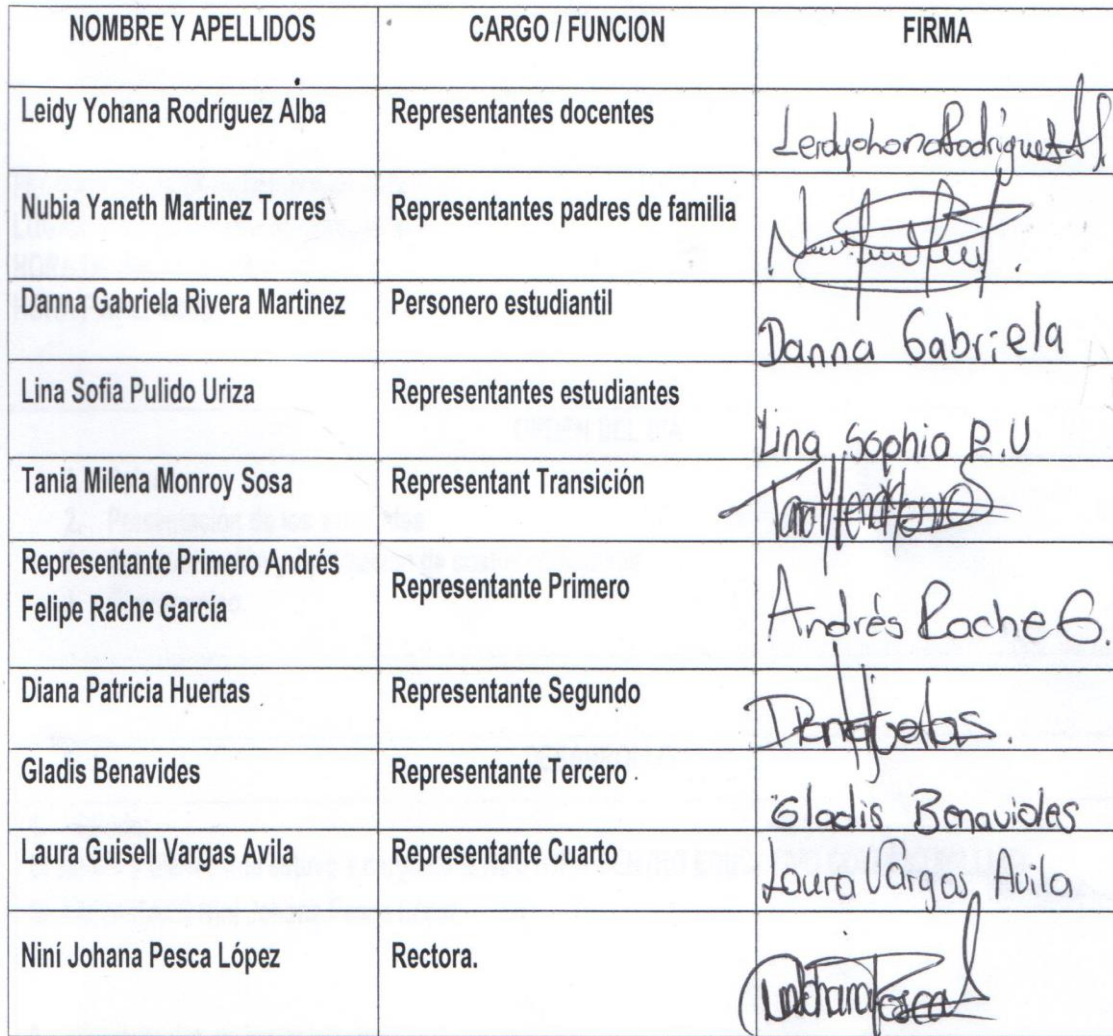 NOMBRE Y APELLIDOS CARGO / FUNCION FIRMA
Leidy Yohana Rodríguez Alba Representantes docentes Leidyohana Rodríguez A.
Nubia Yaneth Martinez Torres Representantes padres de familia
Danna Gabriela Rivera Martinez Personero estudiantil Danna Gabriela
Lina Sofia Pulido Uriza Representantes estudiantes Lina Sophia P.U
Tania Milena Monroy Sosa Representant Transición
Representante Primero Andrés
Felipe Rache García Representante Primero Andrés Rache G.
Diana Patricia Huertas Representante Segundo Diana Huertas.
Gladis Benavides Representante Tercero Gladis Benavides
Laura Guisell Vargas Avila Representante Cuarto Laura Vargas Avila
Niní Johana Pesca López Rectora.